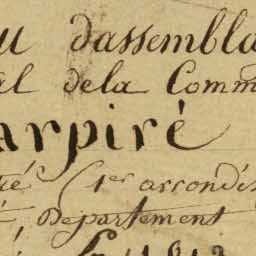 u dassembla
al dela Comm
arpiré
ré (1er arrondis
Departement